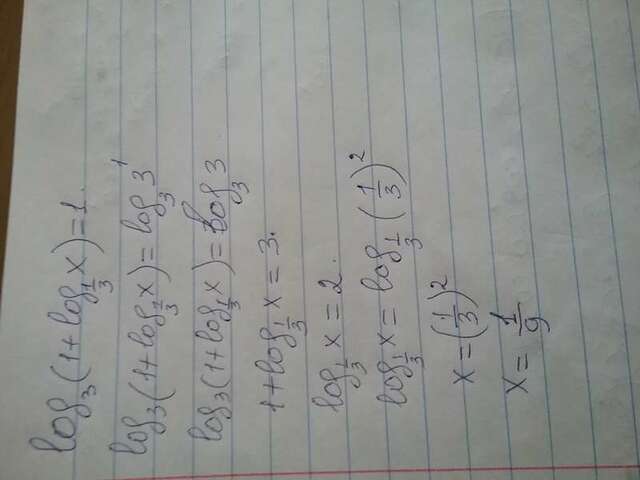 log₃(1+log_{1/3} x)=1.
log₃(1+log_{1/3} x)= log₃ 3¹
log₃(1+log_{1/3} x)= log₃ 3
1+log_{1/3} x = 3.
log_{1/3} x = 2.
log_{1/3} x = log_{1/3} (1/3)²
x = (1/3)²
x = 1/9